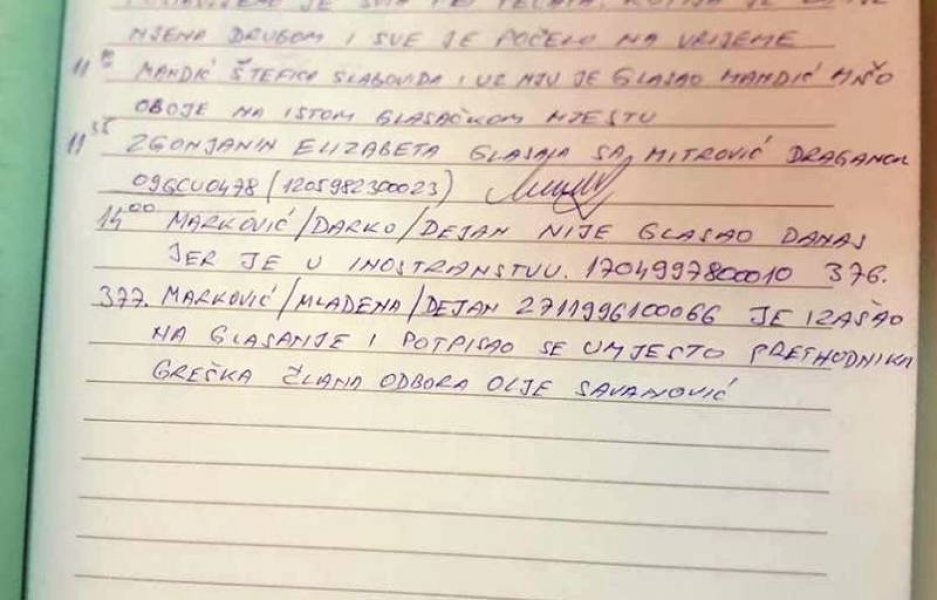 JE SVIH
NJENA DRUGOM I SVE JE POČELO NA VRIJEME
MANDIĆ ŠTEFICA SLABOVIDA I UZ NJU JE GLASAO MANDIĆ
OBOJE NA ISTOM GLASAČKOM MJESTU
11 55 ZGONJANIN ELIZABETA GLASAJA SA MITROVIĆ DRAGANOM
09GCU0478 (1205982300023)
14 00 MARKOVIĆ/DARKO/DEJAN NIJE GLASAO DANAS
JER JE U INOSTRANSTVU. 1704997800010 376.
377. MARKOVIĆ/MLADENA/DEJAN 2711996100066 JE IZAŠAO
NA GLASANJE I POTPISAO SE UMJESTO PRETHODNIKA
GREŠKA ČLANA ODBORA OLJE SAVANOVIĆ